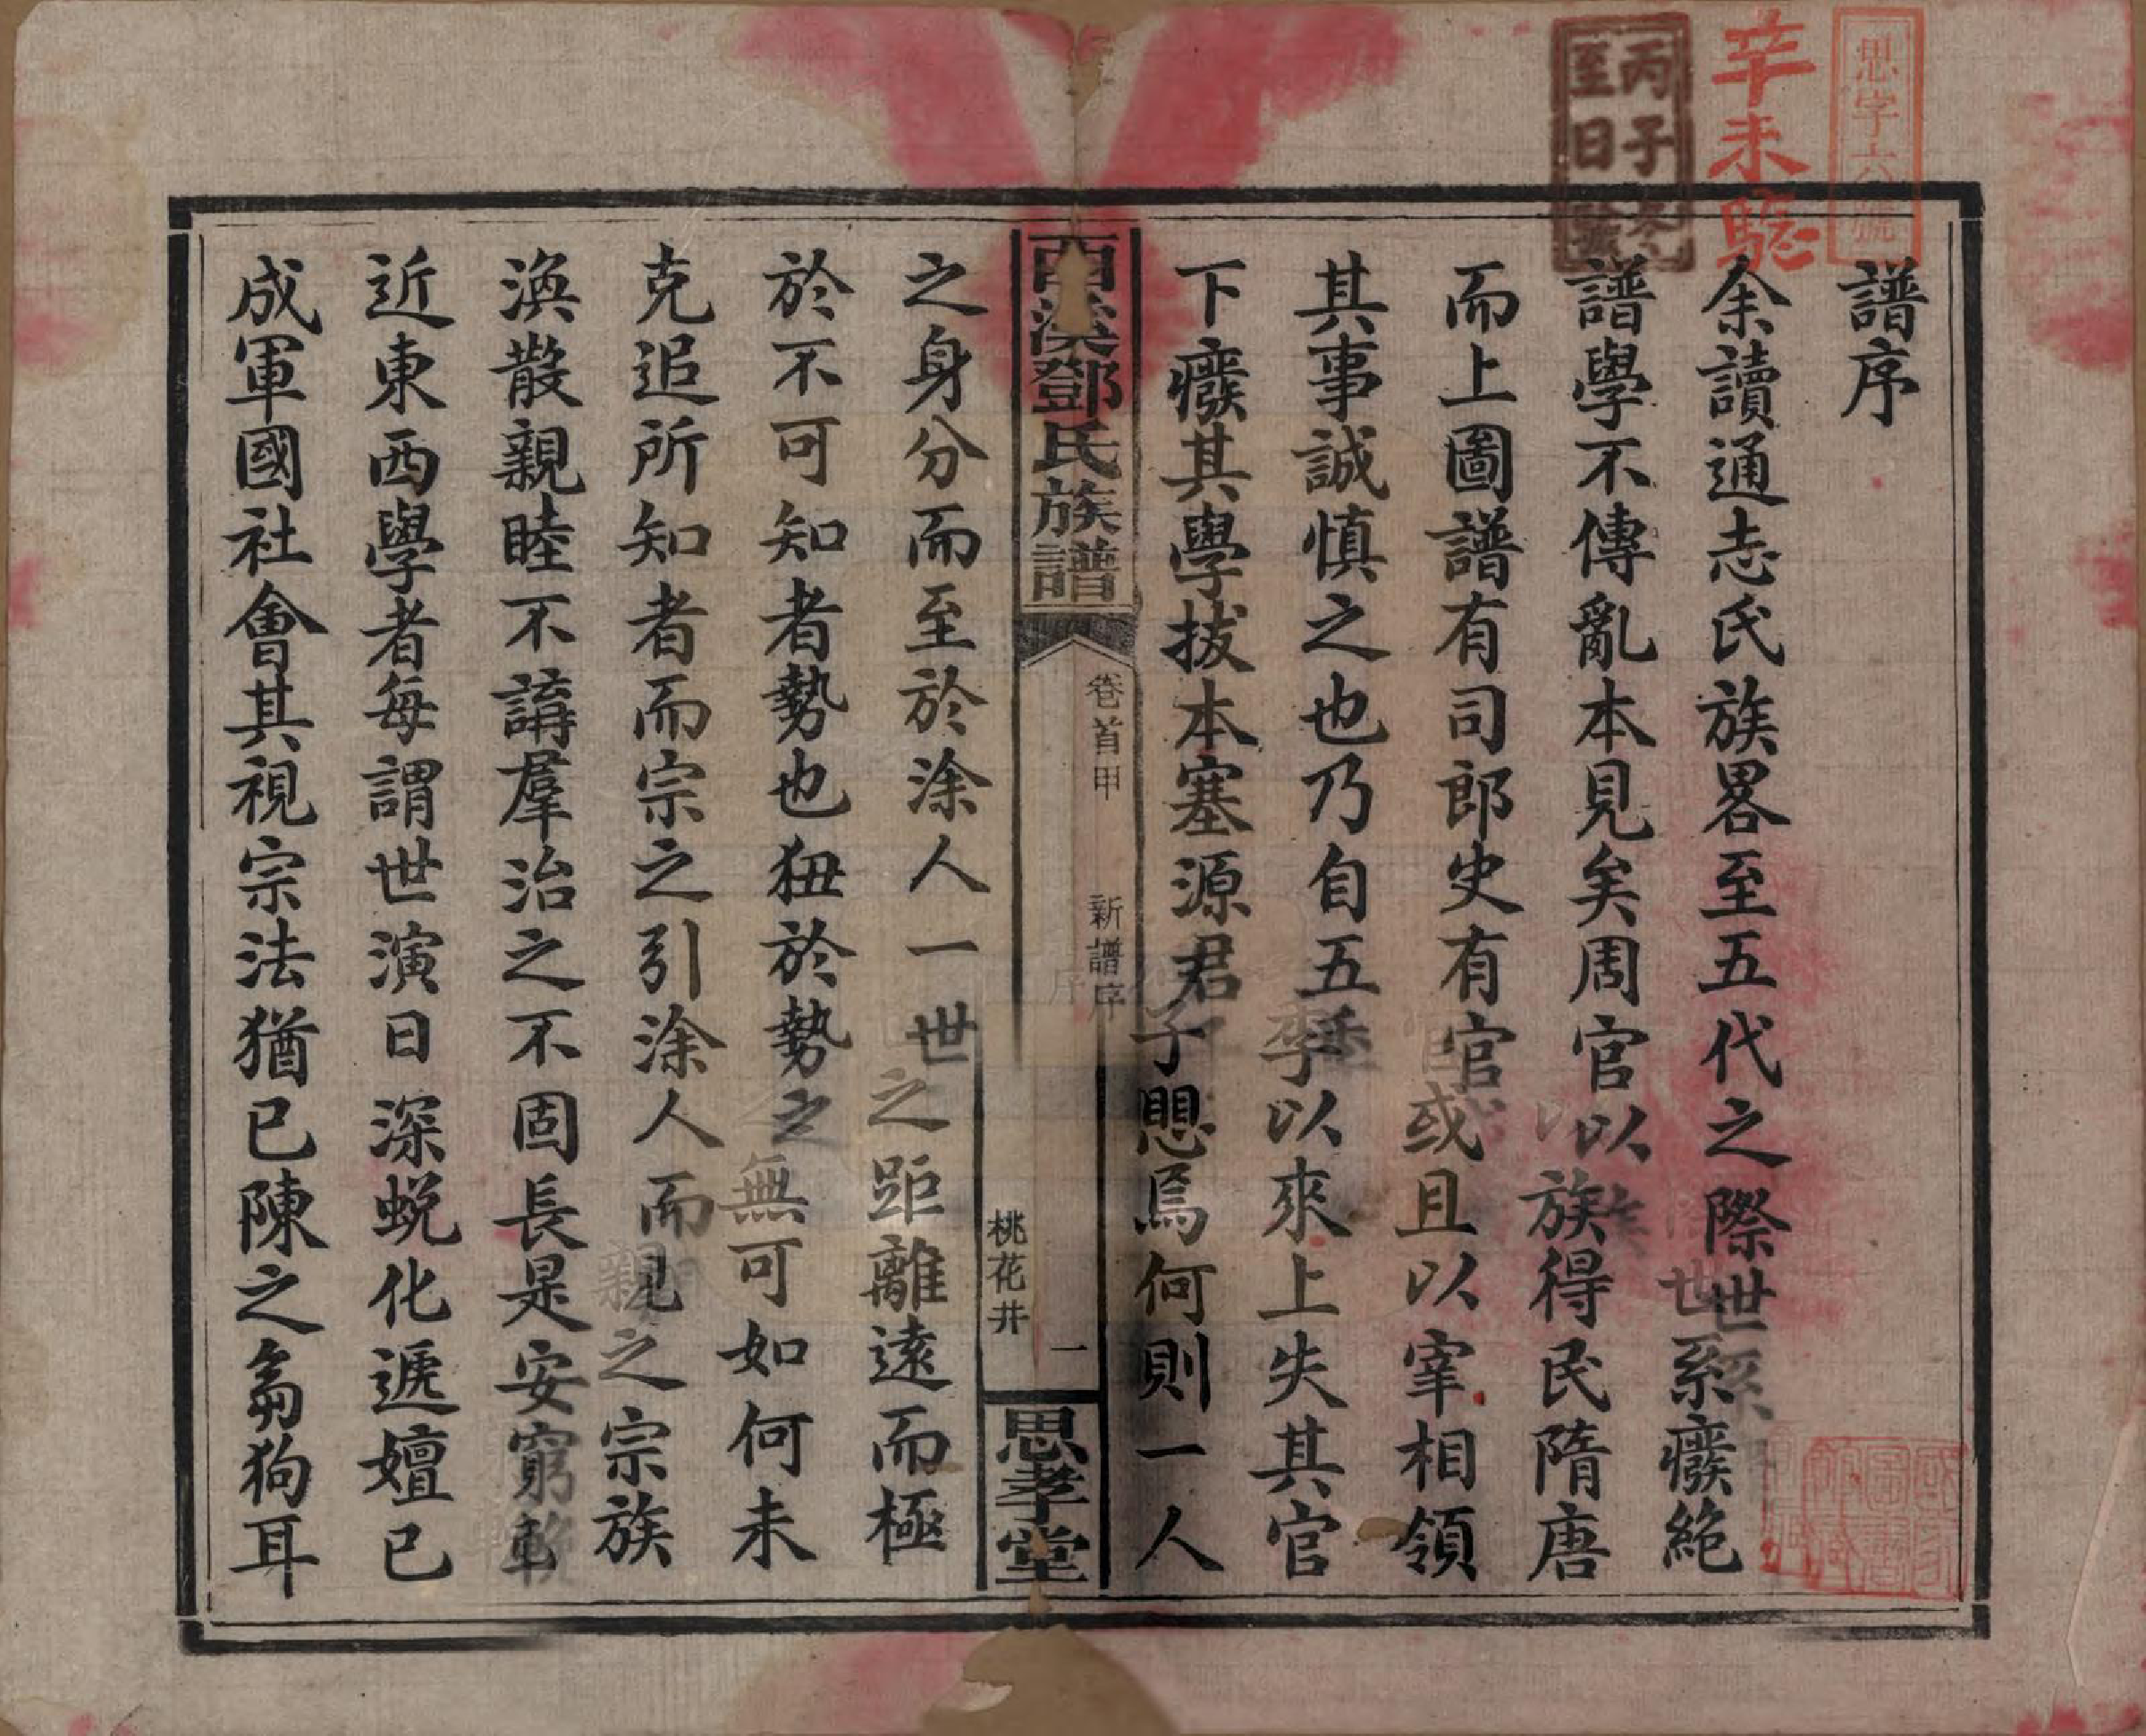 思字六號
辛未騐
丙子冬
至日
譜序
余讀通志氏族畧至五代之際世系癈絶
譜學不傳亂本見矣周官以族得民隋唐
而上圖譜有司郎史有官或且以宰相領
其事誠慎之也乃自五季以來上失其官
下癈其學拔本塞源君子愳焉何則一人
西溪鄧氏族譜
卷首甲
新譜序
桃花井
一
思孝堂
之身分而至於涂人一世之距離遠而極
於不可知者勢也狃於勢之無可如何未
克追所知者而宗之引涂人而親之宗族
渙散親睦不講羣治之不固長是安窮
近東西學者每謂世演日深蛻化遞嬗已
成軍國社會其視宗法猶已陳之芻狗耳